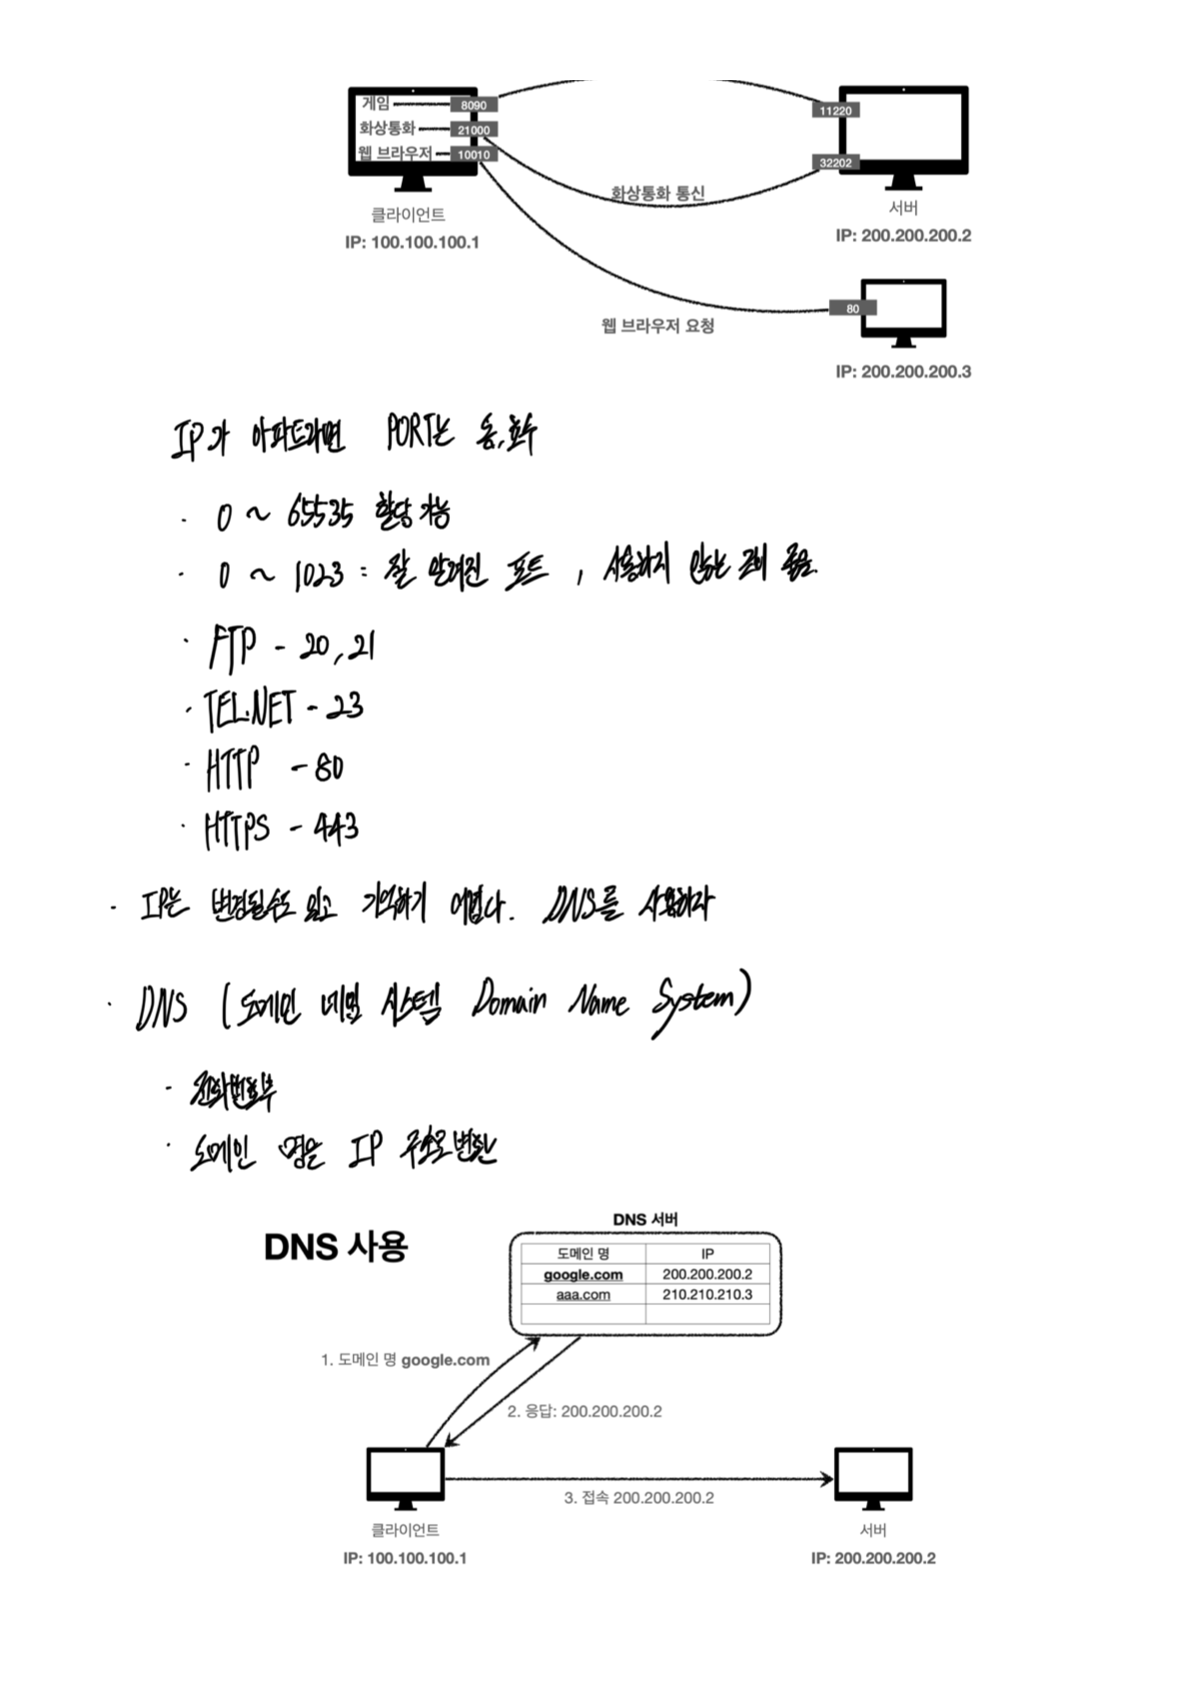 게임 8090
화상통화 21000
웹 브라우저 10010
11220
32202
화상통화 통신
클라이언트
IP: 100.100.100.1
서버
IP: 200.200.200.2
80
웹 브라우저 요청
IP: 200.200.200.3
IP가 아파트라면 PORT는 동,호수
· 0 ~ 65535 할당 가능
· 0 ~ 1023 : 잘 알려진 포트 , 사용하지 않는 것이 좋음.
· FTP - 20,21
· TELNET - 23
· HTTP - 80
· HTTPS - 443
· IP는 변경될수도 있고 기억하기 어렵다. DNS를 사용하자
· DNS (도메인 네임 시스템 Domain Name System)
· 전화번호부
· 도메인 명을 IP 주소로 변환
DNS 사용
DNS 서버
도메인 명 IP
google.com 200.200.200.2
aaa.com 210.210.210.3
1. 도메인 명 google.com
2. 응답: 200.200.200.2
3. 접속 200.200.200.2
클라이언트
IP: 100.100.100.1
서버
IP: 200.200.200.2